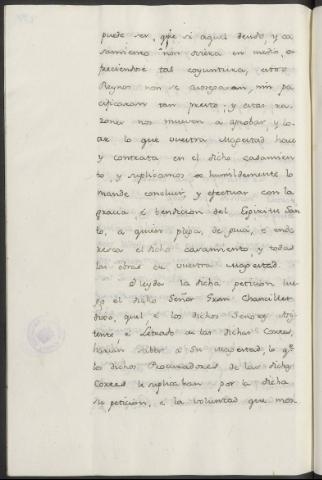 puede ser, que si aquel deudo, y ca
samiento non oviera en medio, o
freciendose tal coyuntura, estos
Reynos non se asosegaran, nin pa
cificaran tan presto; y estas ra
zones nos mueven a aprobar, y lo
ar lo que vuestra Magestad hace
y contrata en el dicho casamien
to, y suplicamos a humildemente lo
mande concluir, y efectuar con la
gracia, é bendicion del Espiritu San
to, a quien plega, de guiar, e ende
rezar el dicho casamiento, y todas
las obras de vuestra Magestad.
E leyda la dicha peticion lue
go el dicho Señor Gran Chanciller
dixo, quel é los dichos Señores Asis
tente, é Letrado de las dichas Cortes,
harian saber a Su Magestad, lo qe
los dichos Procuradores de las dichas
Cortes le suplicaban por la dicha
su peticion, e la voluntad que mos